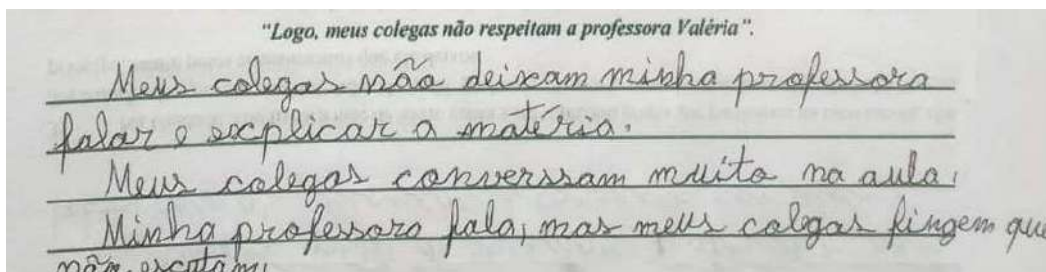 "Logo, meus colegas não respeitam a professora Valéria".
Meus colegas não deixam minha professora
falar e explicar a matéria.
Meus colegas converssam muito na aula.
Minha professora fala, mas meus colgas fingem que
não escutam.